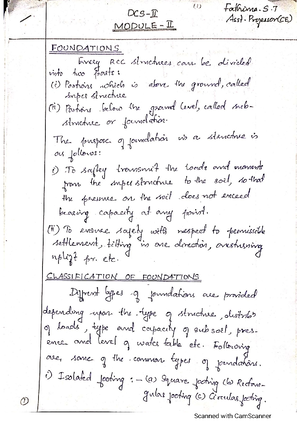 (1)
Fathima. S. J
DCS-II
Asst. Professor (CE)
MODULE - II
FOUNDATIONS
Every RCC structures can be divided
into two parts:
(i) Portions which is above the ground, called
super structure
(ii) Portions below the ground level, called sub-
structure or foundation.
The purpose of foundation in a structure is
as follows:
i) To safley transmit the loads and moments
from the super structure to the soil, so that
the pressure on the soil does not exceed
bearing capacity at any point.
(ii) To ensure safety with respect to permissible
settlement, tilting in one direction, overturning
uplift pr. etc.
CLASSIFICATION OF FOUNDATIONS
Different types of foundation are provided
depending upon the type of structure,
of loads, type and capacity of sub soil, pres-
ence and level of water table etc. Following
are, some of the common types of foundation.
i) Isolated footing :- (a) Square footing (b) Rectan-
gular footing (c) Circular footing.
①
Scanned with CamScanner